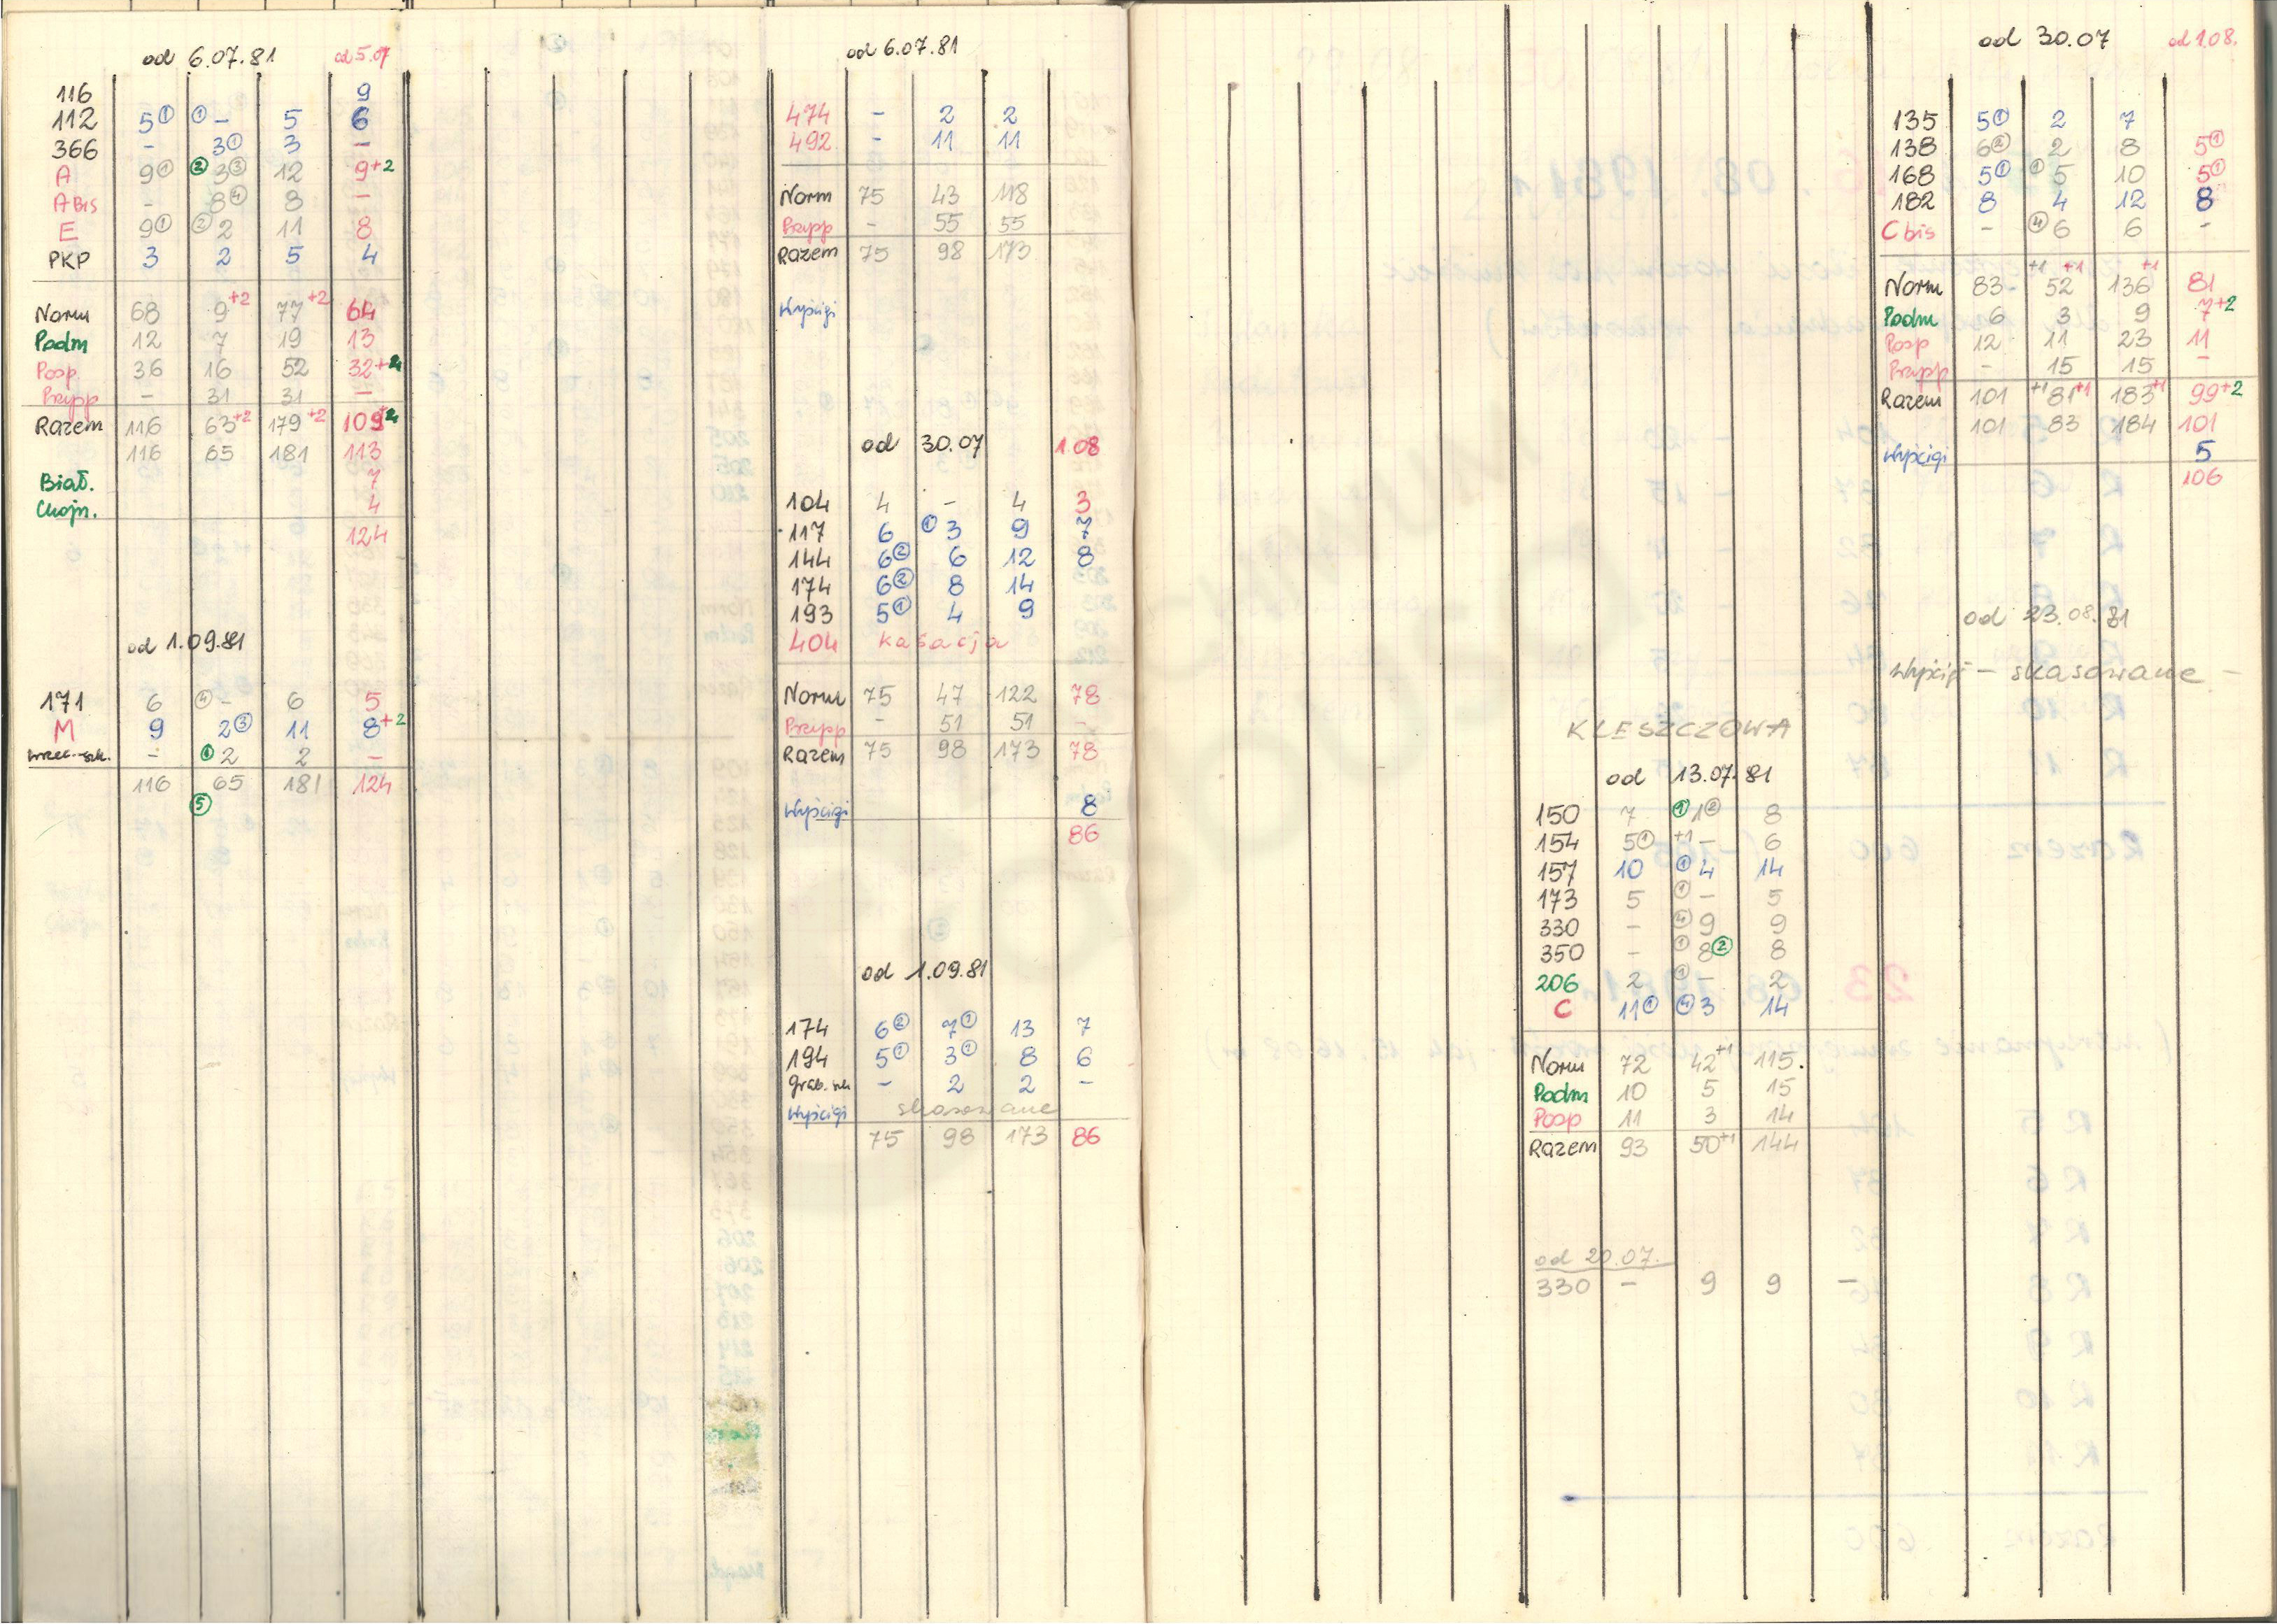 od 6.07.81 od 5.07
116 9
112 5① ①- 5 6
366 - 3① 3 -
A 9① ②3③ 12 9+2
A Bis - 8④ 8 -
E 9① ②2 11 8
PKP 3 2 5 4
Norm 68 9+2 77+2 64
Podm 12 7 19 13
Posp. 36 16 52 32+4
Przysp - 31 31 -
Razem 116 63+2 179+2 109+4
116 65 181 113
Biał. 7
Chojn. 4
124
od 1.09.81
171 6 ④- 6 5
M 9 2③ 11 8+2
wrzec.-szk. - ①2 2 -
116 65 181 124
⑤
od 6.07.81
474 - 2 2
492 - 11 11
Norm 75 43 118
Przysp - 55 55
Razem 75 98 173
Wyścigi
od 30.07 1.08
104 4 - 4 3
117 6 ①3 9 7
144 6② 6 12 8
174 6② 8 14
193 5① 4 9
404 kasacja
Norm 75 47 122 78
Przysp - 51 51 -
Razem 75 98 173 78
Wyścigi 8
86
od 1.09.81
174 6② 7① 13 7
194 5① 3① 8 6
grab. - 2 2 -
Wyścigi skasowane
75 98 173 86
KLESZCZOWA
od 13.07.81
150 7 ①1② 8
154 5① +1 - 6
157 10 ①4 14
173 5 ①- 5
330 - ④9 9
350 - ①8② 8
206 2 ①- 2
C 11① ④3 14
Norm 72 42+1 115.
Podm 10 5 15
Posp 11 3 14
Razem 93 50+1 144
od 20.07.
330 - 9 9 -
od 30.07 od 1.08.
135 5① 2 7
138 6② 2 8 5①
168 5① ①5 10 5①
182 8 4 12 8
C bis - ④6 6 -
Norm 83 +1 52+1 136+1 81
Podm 6 3 9 7+2
Posp 12 11 23 11
Przysp - 15 15 -
Razem 101 +1 81+1 183+1 99+2
101 83 184 101
Wyścigi 5
106
od 23.08.81
Wyścigi - skasowane -